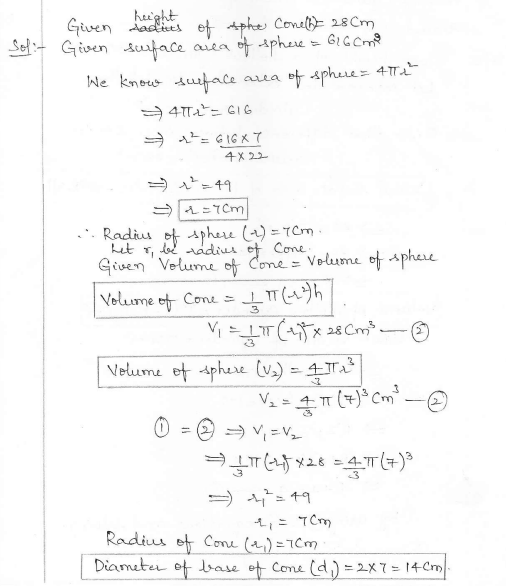 Given height of Cone(h)= 28Cm
Sol:- Given surface area of sphere = 616Cm²
We know surface area of sphere = 4πr²
⇒ 4πr² = 616
⇒ r² = 616×7 / 4×22
⇒ r² = 49
⇒ r = 7Cm
∴ Radius of sphere (r) = 7Cm.
Let r₁ be radius of Cone.
Given Volume of Cone = Volume of sphere
Volume of Cone = 1/3 π(r²)h
V₁ = 1/3 π(r₁)² × 28Cm³ — ②
Volume of sphere (V₂) = 4/3 πr³
V₂ = 4/3 π(7)³ Cm³ — ②
① = ② ⇒ V₁ = V₂
⇒ 1/3 π(r₁)² ×28 = 4/3 π(7)³
⇒ r₁² = 49
r₁ = 7Cm
Radius of Cone (r₁) = 7Cm.
Diameter of base of Cone (d₁) = 2×7 = 14Cm.